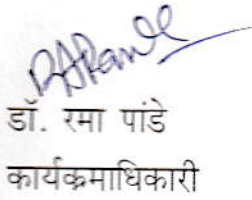 डॉ. रमा पांडे
कार्यक्रमाधिकारी